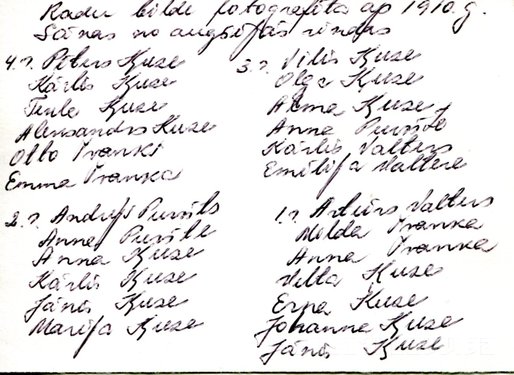 Radu bilde fotografēta ap 1910. g.
Sānas no augšējās rindas
4. r. Pēters Kuze
Kārlis Kuze
Kuze
Aleksandrs Kuze
Otto Pranks
Emma Pranka
3. r. Vilis Kuze
Olga Kuze
Alma Kuze
Anna Puriņš
Kārlis Valters
Emīlija Valtere
2. r. Andrejs
Anna
Anna Kuze
Kārlis Kuze
Jānis Kuze
Marija Kuze
1. r. Artūrs Valters
Milda Pranka
Anna Pranka
Velta Kuze
Erna Kuze
Johanna Kuze
Jānis Kuze